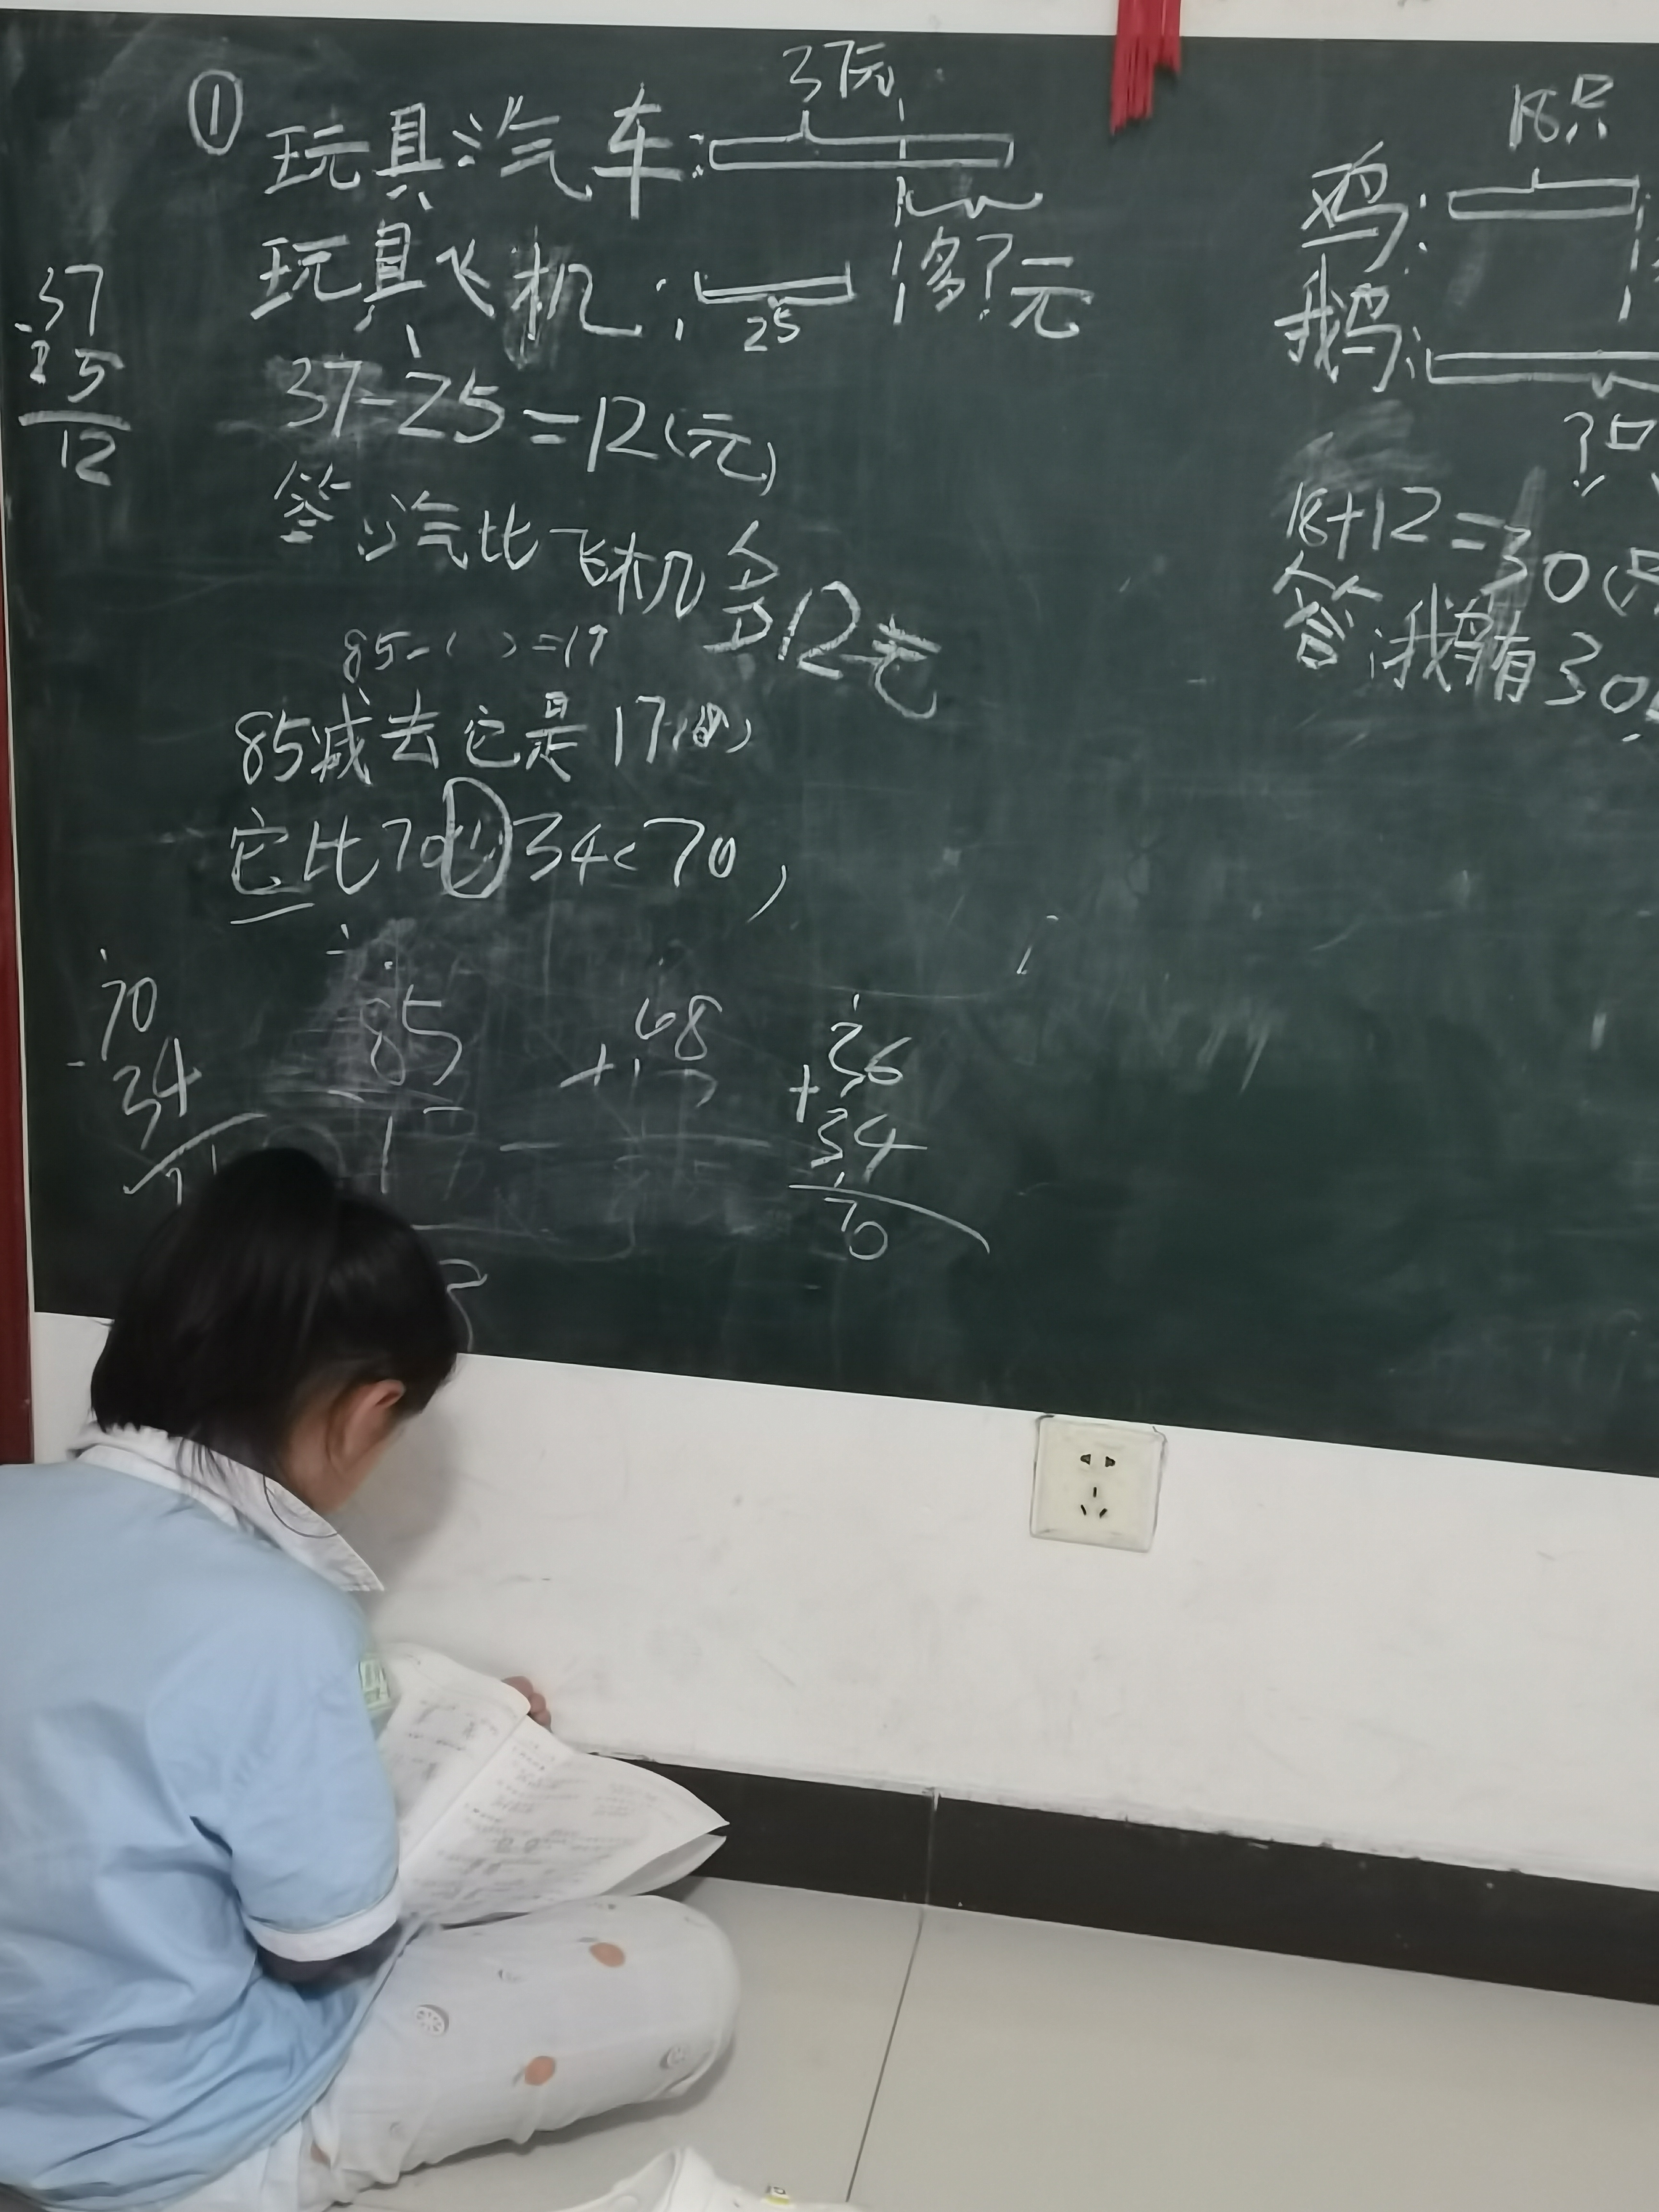 ①
37元
玩具汽车:
玩具飞机:
多?元
25
37-25=12(元)
答:汽比飞机多12元
37
-25
12
85-( )=17
85减去它是17
它比70少34<70,
70
-34
85
-17
68
+17
36
+34
70
18只
鸡:
鹅:
?只
18+12=30(只
答:鹅有30